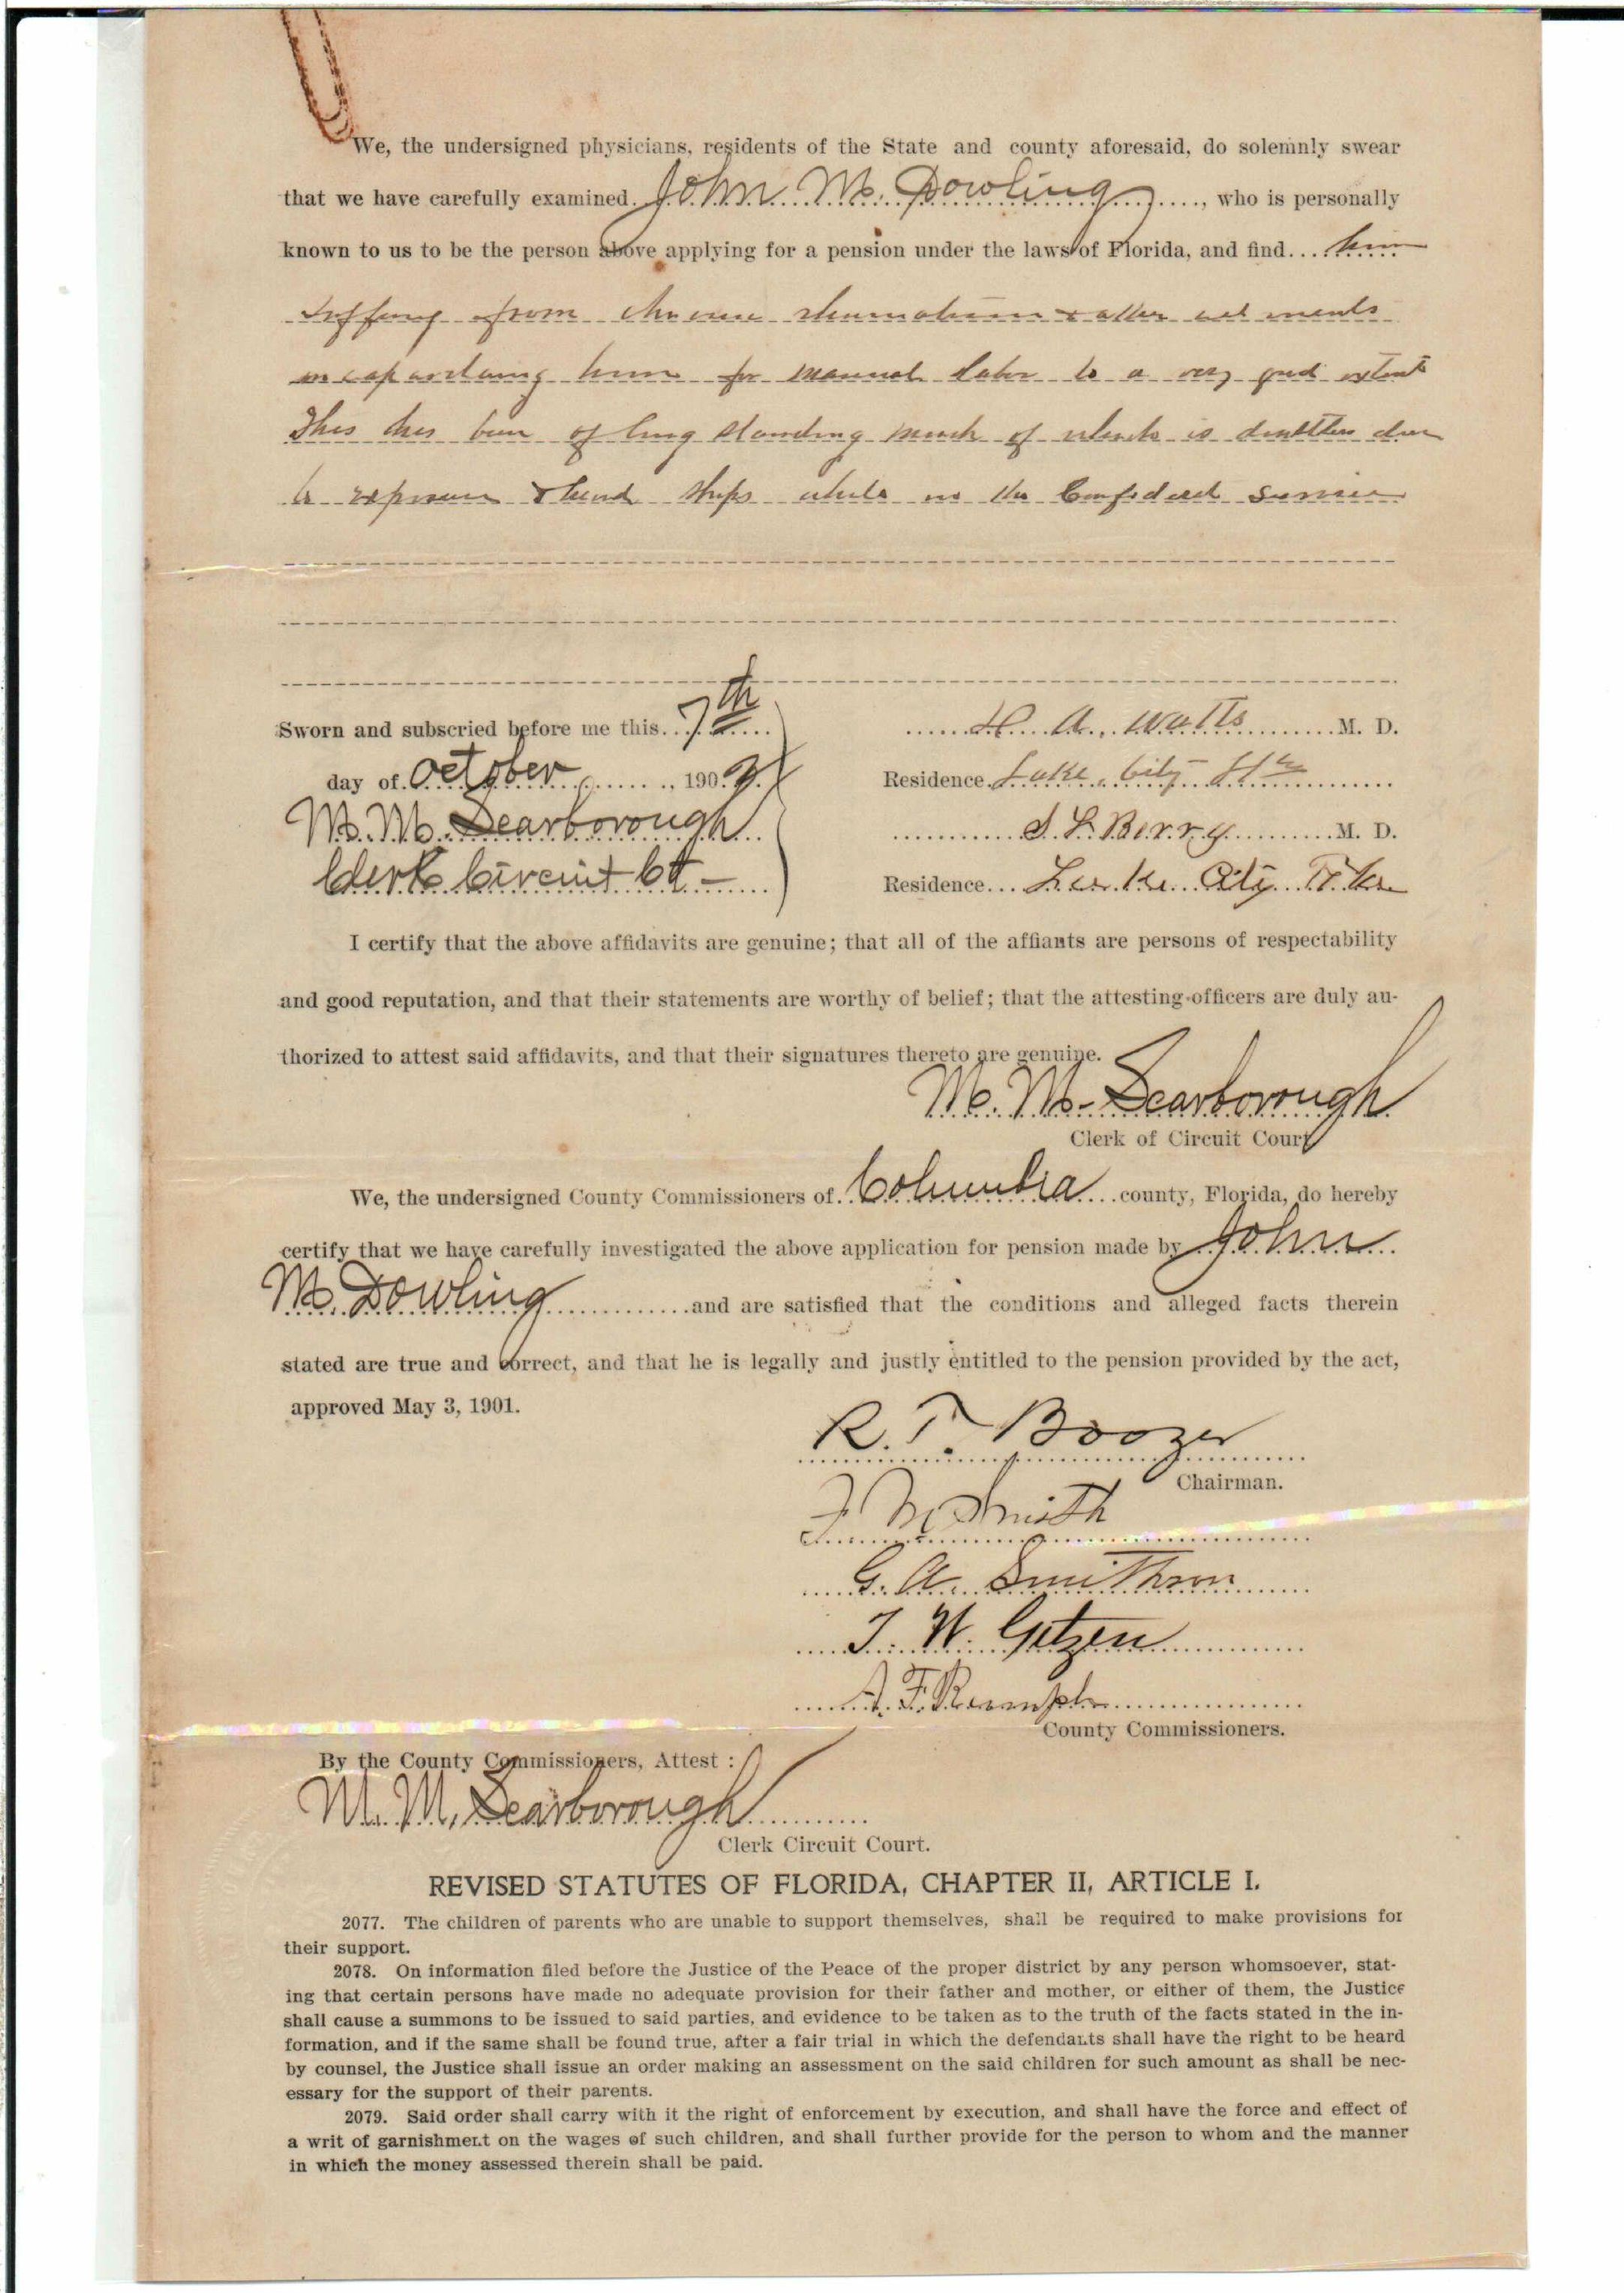 We, the undersigned physicians, residents of the State and county aforesaid, do solemnly swear
that we have carefully examined John M. Dowling, who is personally
known to us to be the person above applying for a pension under the laws of Florida, and find him
suffering from chronic rheumatism & other ailments
incapacitating him for manual labor to a very great extent
This has been of long standing much of which is doubtless due
to exposure & hard ships while in the Confederate service
Sworn and subscried before me this 7th
day of October, 190
M. M. Scarborough
Clerk Circuit Ct-
H. A. Watts M. D.
Residence Lake City Fla
S. L. Berry M. D.
Residence Lake City Fla
I certify that the above affidavits are genuine; that all of the affiants are persons of respectability
and good reputation, and that their statements are worthy of belief; that the attesting officers are duly au-
thorized to attest said affidavits, and that their signatures thereto are genuine.
M. M. Scarborough
Clerk of Circuit Court
We, the undersigned County Commissioners of Columbia county, Florida, do hereby
certify that we have carefully investigated the above application for pension made by John
M. Dowling and are satisfied that the conditions and alleged facts therein
stated are true and correct, and that he is legally and justly entitled to the pension provided by the act,
approved May 3, 1901.
R. T. Boozer
Chairman.
F. M Smith
G. A. Smithson
T. W. Getzen
A. F.
County Commissioners.
By the County Commissioners, Attest :
M. M. Scarborough
Clerk Circuit Court.
REVISED STATUTES OF FLORIDA, CHAPTER II, ARTICLE I.
2077. The children of parents who are unable to support themselves, shall be required to make provisions for
their support.
2078. On information filed before the Justice of the Peace of the proper district by any person whomsoever, stat-
ing that certain persons have made no adequate provision for their father and mother, or either of them, the Justice
shall cause a summons to be issued to said parties, and evidence to be taken as to the truth of the facts stated in the in-
formation, and if the same shall be found true, after a fair trial in which the defendants shall have the right to be heard
by counsel, the Justice shall issue an order making an assessment on the said children for such amount as shall be nec-
essary for the support of their parents.
2079. Said order shall carry with it the right of enforcement by execution, and shall have the force and effect of
a writ of garnishment on the wages of such children, and shall further provide for the person to whom and the manner
in which the money assessed therein shall be paid.